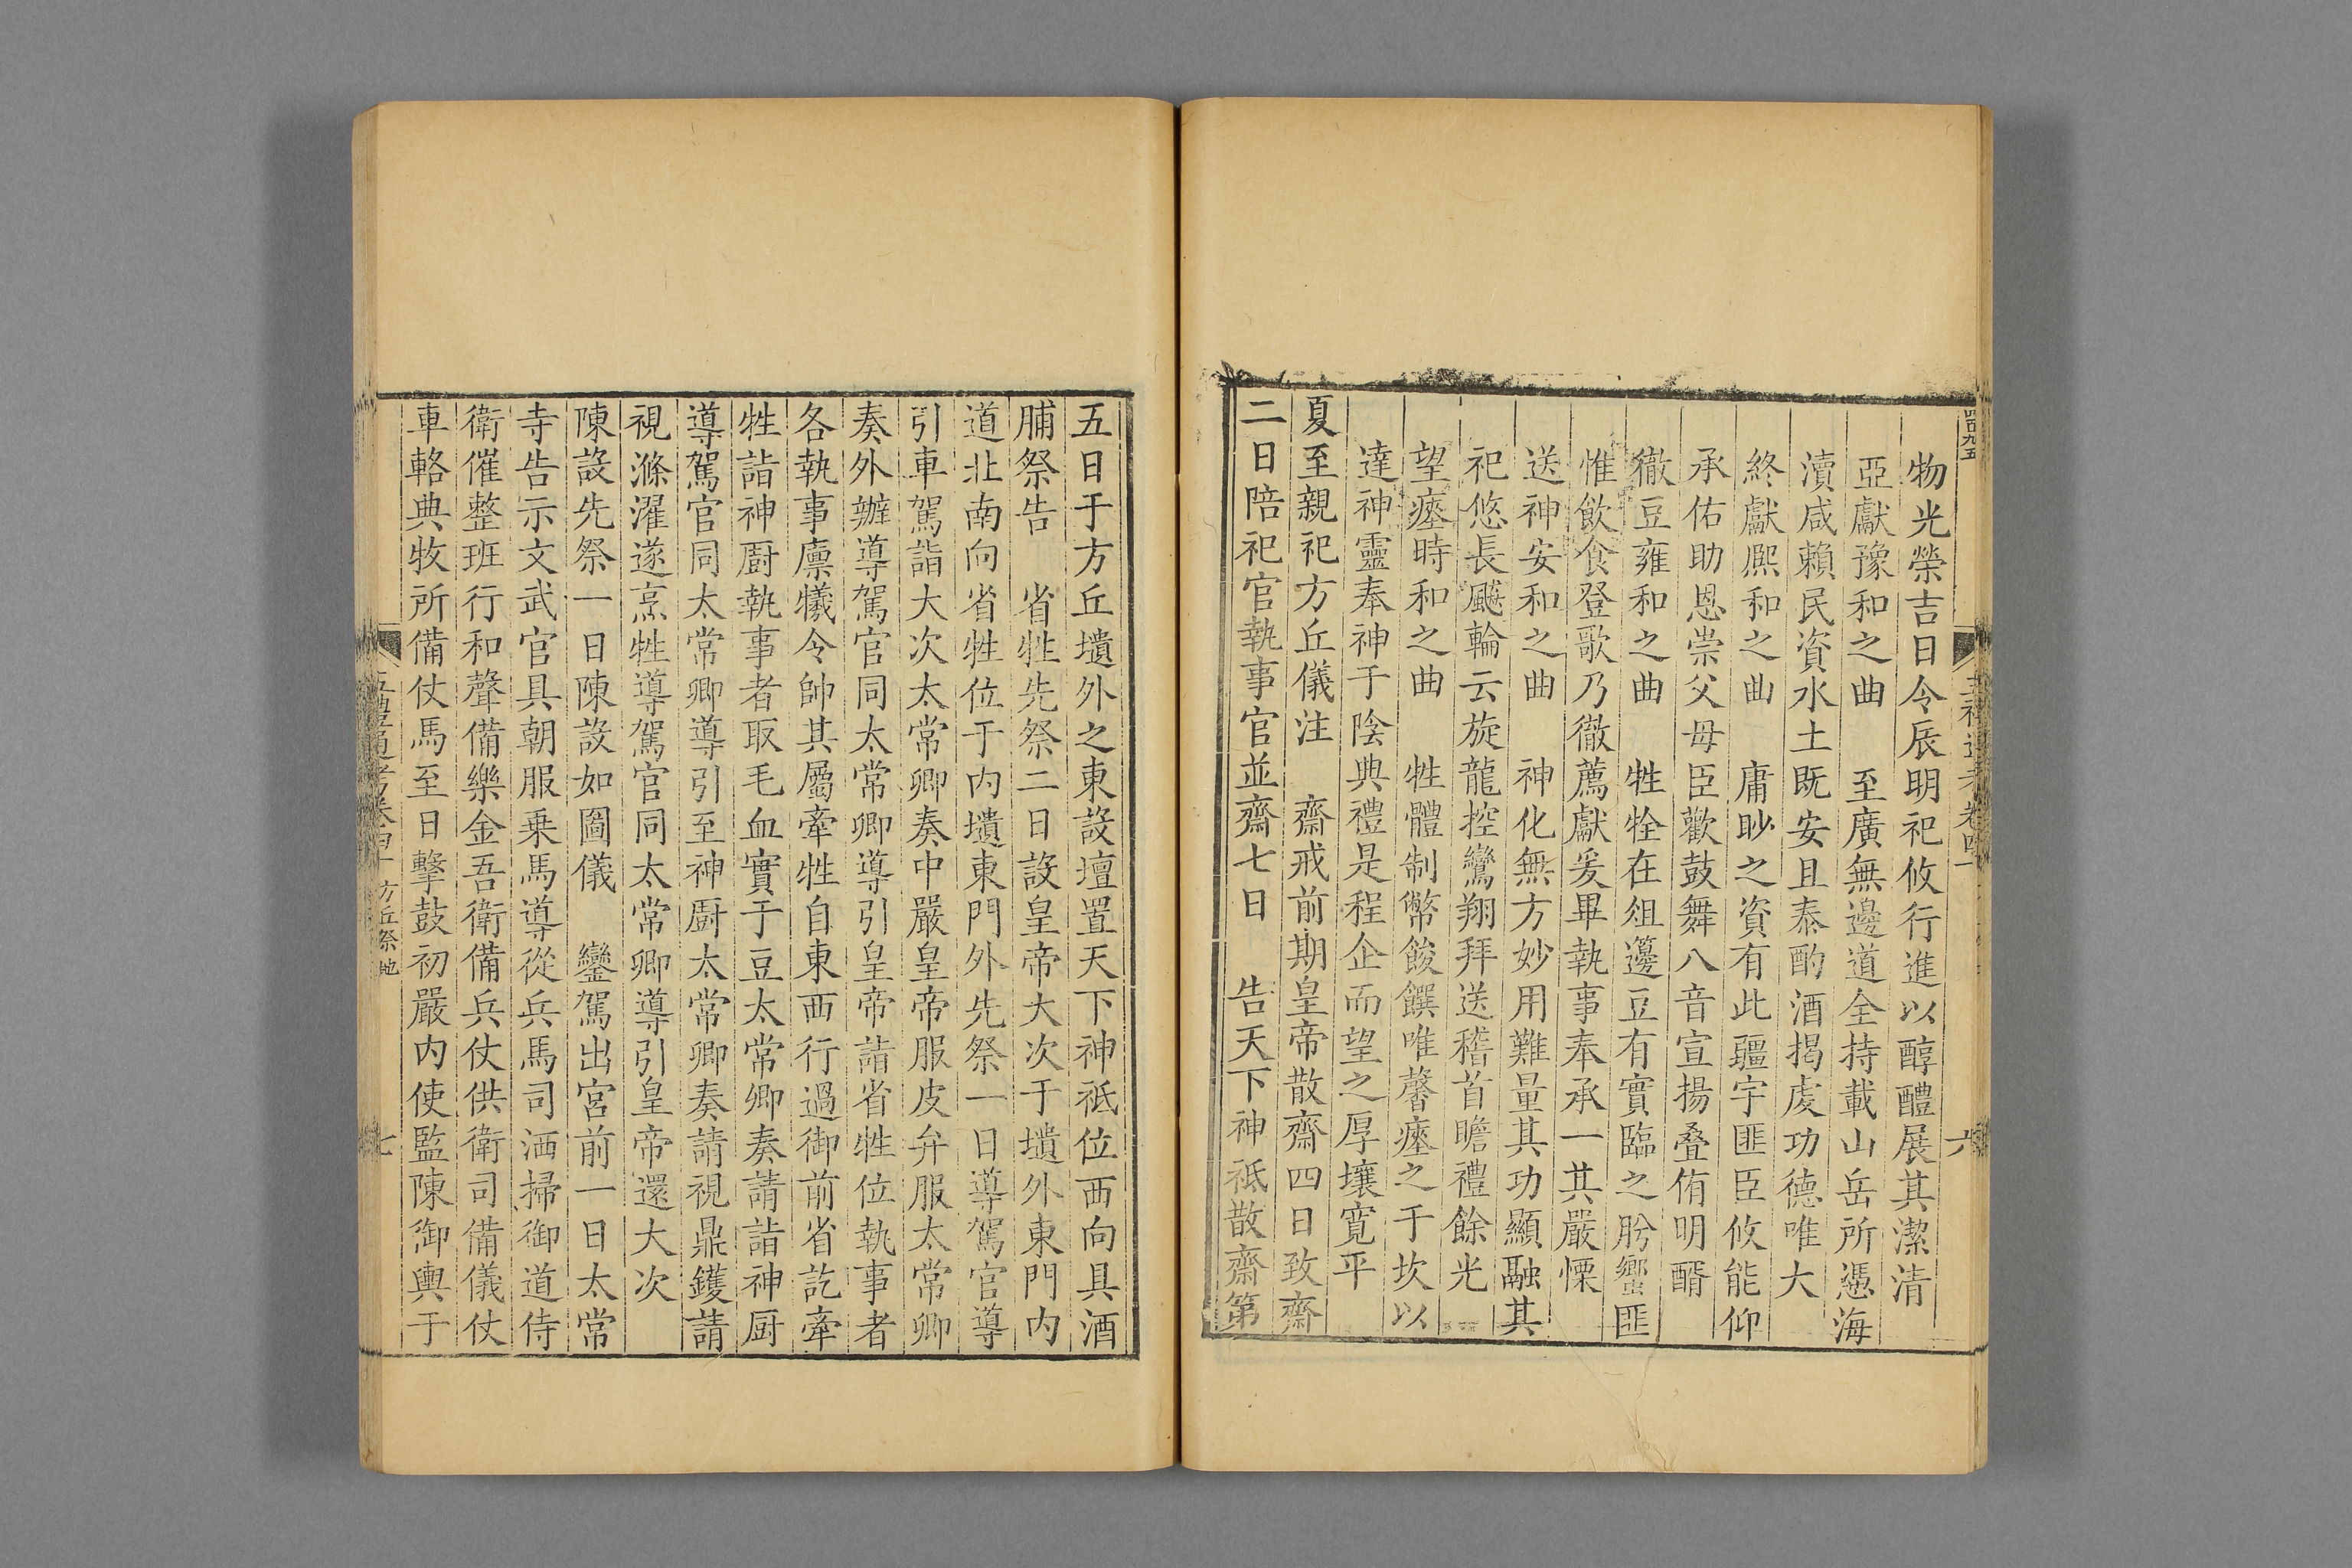 物光榮吉日令辰明祀攸行進以醇醴展其潔清
亞獻豫和之曲　至廣無邊道全持載山岳所憑海
瀆咸賴民資水土既安且泰酌酒揭虔功德唯大
終獻熈和之曲　庸眇之資有此疆宇匪臣攸能仰
承佑助恩崇父母臣歡鼓舞八音宣揚叠侑明醑
徹豆雍和之曲　牲牷在俎籩豆有實臨之肸蠁匪
惟飲食登歌乃徹薦獻爰畢執事奉承一其嚴慄
送神安和之曲　神化無方妙用難量其功顯融其
祀悠長飈輪云旋龍控鸞翔拜送稽首瞻禮餘光
望瘞時和之曲　牲體制幣餕饌唯馨瘞之于坎以
達神靈奉神于陰典禮是程企而望之厚壤寬平
夏至親祀方丘儀注　齋戒前期皇帝散齋四日致齋
二日陪祀官執事官並齋七日　告天下神祇散齋第
五日于方丘壝外之東設壇置天下神祇位西向具酒
脯祭告　省牲先祭二日設皇帝大次于壝外東門内
道北南向省牲位于内壝東門外先祭一日導駕官導
引車駕詣大次太常卿奏中嚴皇帝服皮弁服太常卿
奏外辦導駕官同太常卿導引皇帝詣省牲位執事者
各執事廪犧令帥其屬牽牲自東西行過御前省訖牽
牲詣神厨執事者取毛血實于豆太常卿奏請詣神厨
導駕官同太常卿導引至神厨太常卿奏請視鼎鑊請
視滌濯遂烹牲導駕官同太常卿導引皇帝還大次
陳設先祭一日陳設如圖儀　鑾駕出宮前一日太常
寺告示文武官具朝服乘馬導從兵馬司洒掃御道侍
衛催整班行和聲備樂金吾衛備兵仗供衛司備儀仗
車輅典牧所備仗馬至日擊鼓初嚴内使監陳御輿于
五禮通考卷四十　方丘祭地
七